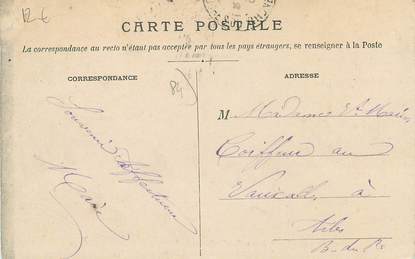 12 €
CARTE POSTALE
La correspondance au recto n'étant pas acceptée par tous les pays étrangers, se renseigner à la Poste
CORRESPONDANCE
84
Souvenir affectueux
Marie
ADRESSE
M Madame
Coiffeur au
à
Arles
B. du R.